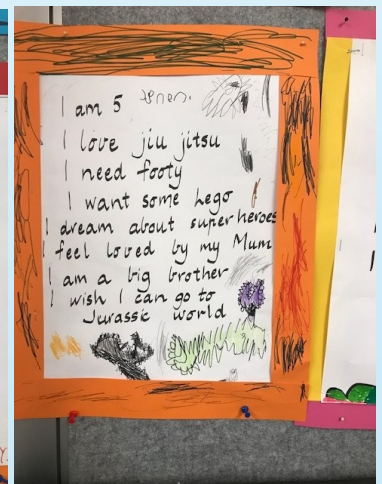 I am 5
I love jiu jitsu
I need footy
I want some Lego
I dream about superheroes
I feel loved by my Mum
I am a big brother
I wish I can go to
Jurassic world